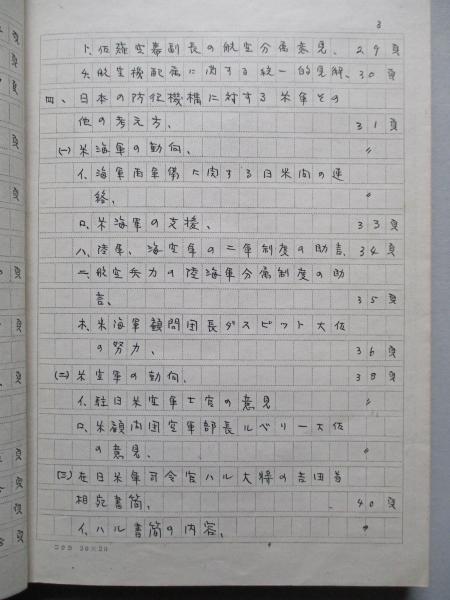 3
ト、佐薙空幕副長の航空分属意見、29頁
チ、航空機配属に関する統一的見解、30頁
四、日本の防衛機構に対する米軍その
他の考え方、31頁
(一)米海軍の動向、〃
イ、海軍再軍備に関する日米間の連
絡、〃
ロ、米海軍の支援、33頁
ハ、陸軍、海空軍の二軍制度の助言、34頁
ニ、航空兵力の陸海軍分属制度の助
言、35頁
ホ、米海軍顧問団長ダスビット大佐
の努力、36頁
(二)米空軍の動向、38頁
イ、駐日米空軍士官の意見〃
ロ、米顧問団空軍部長ルベリー大佐
の意見、〃
(三)在日米軍司令官ハル大将の吉田首
相宛書簡、40頁
イ、ハル書簡の内容、〃
コクヨ 20×20